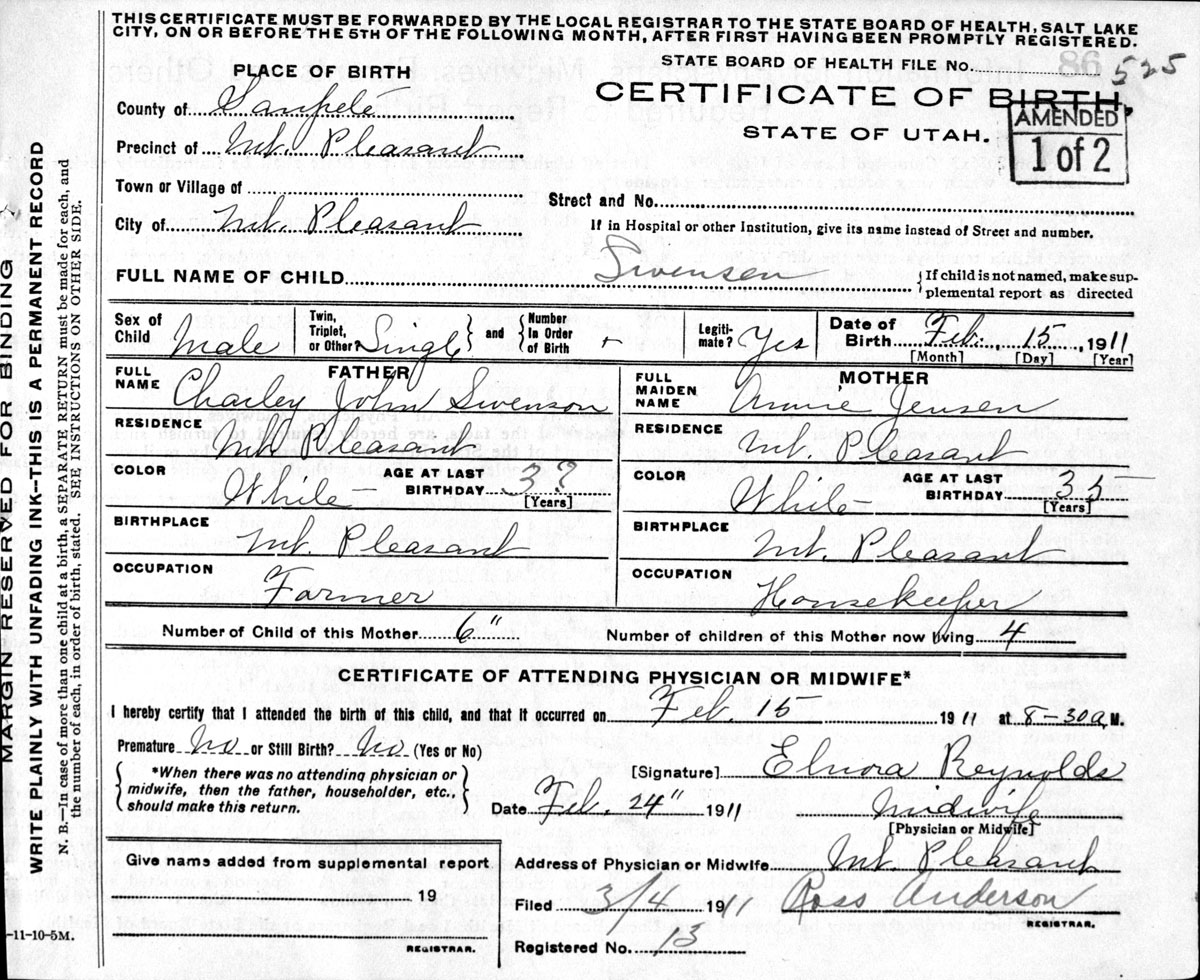 THIS CERTIFICATE MUST BE FORWARDED BY THE LOCAL REGISTRAR TO THE STATE BOARD OF HEALTH, SALT LAKE
CITY, ON OR BEFORE THE 5TH OF THE FOLLOWING MONTH, AFTER FIRST HAVING BEEN PROMPTLY REGISTERED.
MARGIN RESERVED FOR BINDING
WRITE PLAINLY WITH UNFADING INK—THIS IS A PERMANENT RECORD
N. B.—In case of more than one child at a birth, a SEPARATE RETURN must be made for each, and
the number of each, in order of birth, stated. SEE INSTRUCTIONS ON OTHER SIDE.
PLACE OF BIRTH
STATE BOARD OF HEALTH FILE No. 525
86
County of Sanpete
CERTIFICATE OF BIRTH.
STATE OF UTAH.
AMENDED
1 of 2
Precinct of Mt. Pleasant
Town or Village of
Street and No.
City of Mt. Pleasant
If in Hospital or other Institution, give its name instead of Street and number.
FULL NAME OF CHILD Swensen
{If child is not named, make sup-
plemental report as directed
Sex of Child Male
Twin, Triplet, or Other? Single
and
Number In Order of Birth
Legiti-mate? Yes
Date of Birth Feb. 15 1911
[Month] [Day] [Year]
FATHER
FULL NAME Charley John Swenson
RESIDENCE Mt. Pleasant
COLOR White
AGE AT LAST BIRTHDAY
[Years]
BIRTHPLACE Mt. Pleasant
OCCUPATION Farmer
MOTHER
FULL MAIDEN NAME Annie Jensen
RESIDENCE Mt. Pleasant
COLOR White
AGE AT LAST BIRTHDAY 35
[Years]
BIRTHPLACE Mt. Pleasant
OCCUPATION Housekeeper
Number of Child of this Mother 6"
Number of children of this Mother now living 4
CERTIFICATE OF ATTENDING PHYSICIAN OR MIDWIFE*
I hereby certify that I attended the birth of this child, and that it occurred on Feb. 15 1911 at 8-30 a M.
Premature No or Still Birth? No (Yes or No)
*When there was no attending physician or
midwife, then the father, householder, etc.,
should make this return.
[Signature] Elnora Reynolds
Date Feb. 24" 1911
Midwife
[Physician or Midwife]
Give name added from supplemental report
19
REGISTRAR.
Address of Physician or Midwife Mt. Pleasant
Filed 3/4 1911 Ross Anderson
REGISTRAR.
Registered No. 13
-11-10-5M.